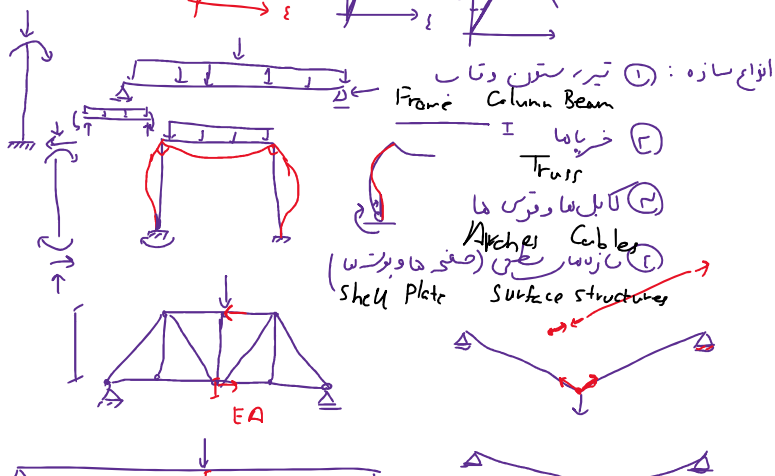 ε
ε
انواع سازه : ① تیر، ستون و قاب
Frame Column Beam
I
② خرپاها
Truss
③ کابل‌ها و قوس ها
Arches Cables
④ سازه‌های سطحی (صفحه ها و پوسته ها)
Shell Plate Surface structures
EA